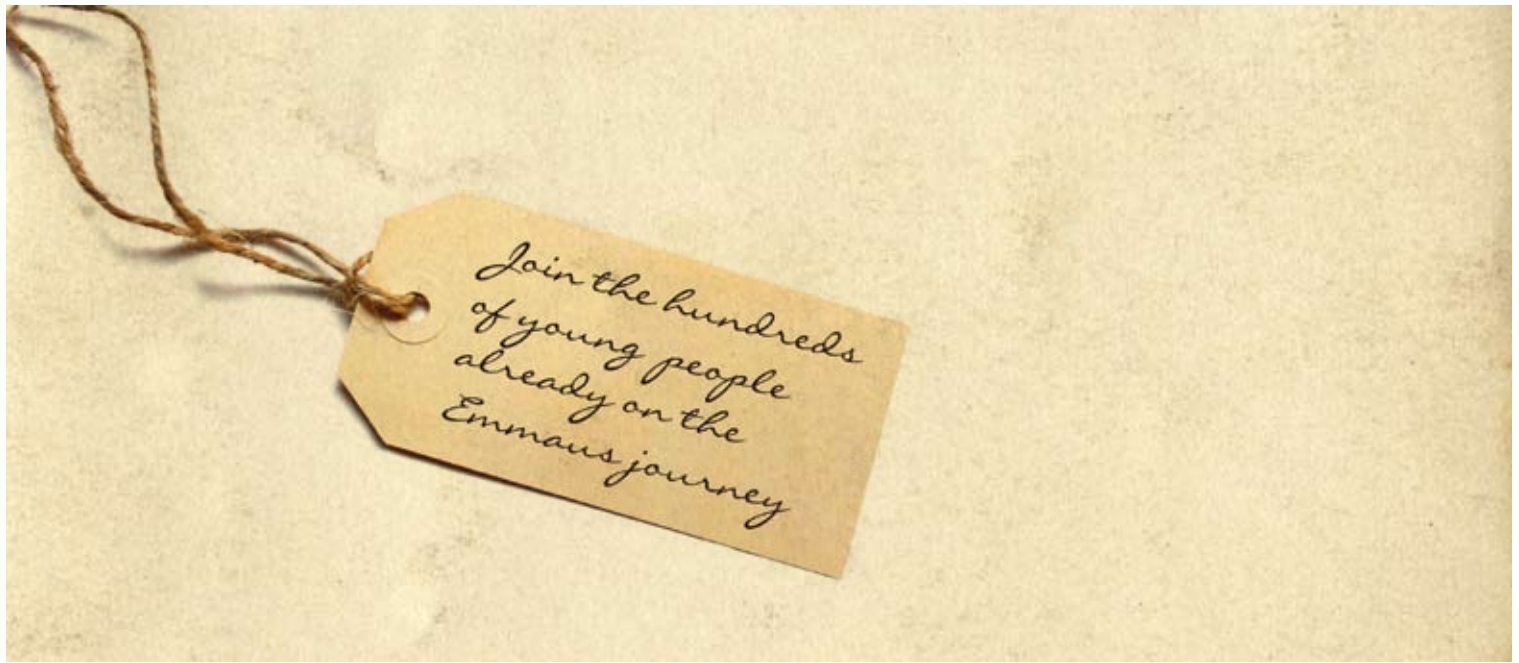 Join the hundreds
of young people
already on the
Emmaus journey